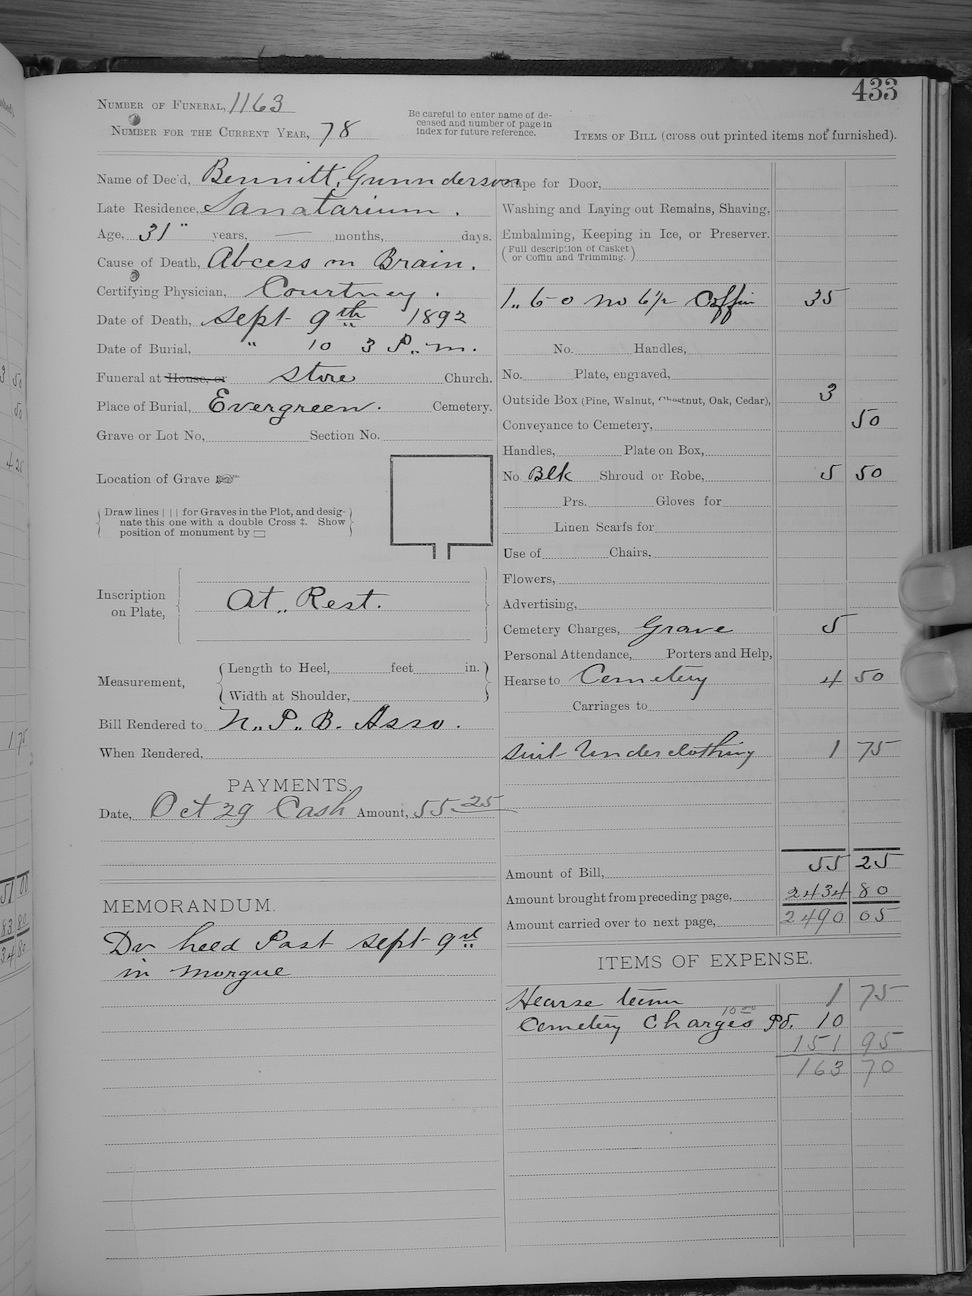 433
NUMBER OF FUNERAL, 1163
NUMBER FOR THE CURRENT YEAR, 78
Be careful to enter name of de-
ceased and number of page in
index for future reference.
ITEMS OF BILL (cross out printed items not furnished).
Name of Dec'd, Bennitt, Gunnderson
Late Residence, Sanatarium.
Age, 31 " years, — months, days.
Cause of Death, Abcess on Brain.
Certifying Physician, Courtney.
Date of Death, Sept 9th 1892
Date of Burial, " 10 3 P.. m.
Funeral at House, or Store Church.
Place of Burial, Evergreen. Cemetery.
Grave or Lot No, Section No.
Location of Grave ☞
Draw lines | | | for Graves in the Plot, and desig-
nate this one with a double Cross ‡. Show
position of monument by ▭
Inscription
on Plate,
At.. Rest.
Measurement,
Length to Heel, feet in.
Width at Shoulder,
Bill Rendered to N.. P.. B. Asso.
When Rendered,
PAYMENTS.
Date, Oct 29 Cash Amount, 55 25
MEMORANDUM.
Dr held Post Sept 9th
in morgue
Crape for Door,
Washing and Laying out Remains, Shaving,
Embalming, Keeping in Ice, or Preserver.
( Full description of Casket
or Coffin and Trimming. )
1.. 6-0 no 6 1/2 Coffin 35
No. Handles,
No. Plate, engraved,
Outside Box (Pine, Walnut, Chestnut, Oak, Cedar), 3
Conveyance to Cemetery, 50
Handles, Plate on Box,
No Blk Shroud or Robe, 5 50
Prs. Gloves for
Linen Scarfs for
Use of Chairs,
Flowers,
Advertising,
Cemetery Charges, Grave 5
Personal Attendance, Porters and Help,
Hearse to Cemetery 4 50
Carriages to
Suit Underclothing 1 75
Amount of Bill, 55 25
Amount brought from preceding page, 2434 80
Amount carried over to next page, 2490 05
ITEMS OF EXPENSE.
Hearse team 1 75
10 00
Cemetery Charges Pd. 10
151 95
163 70